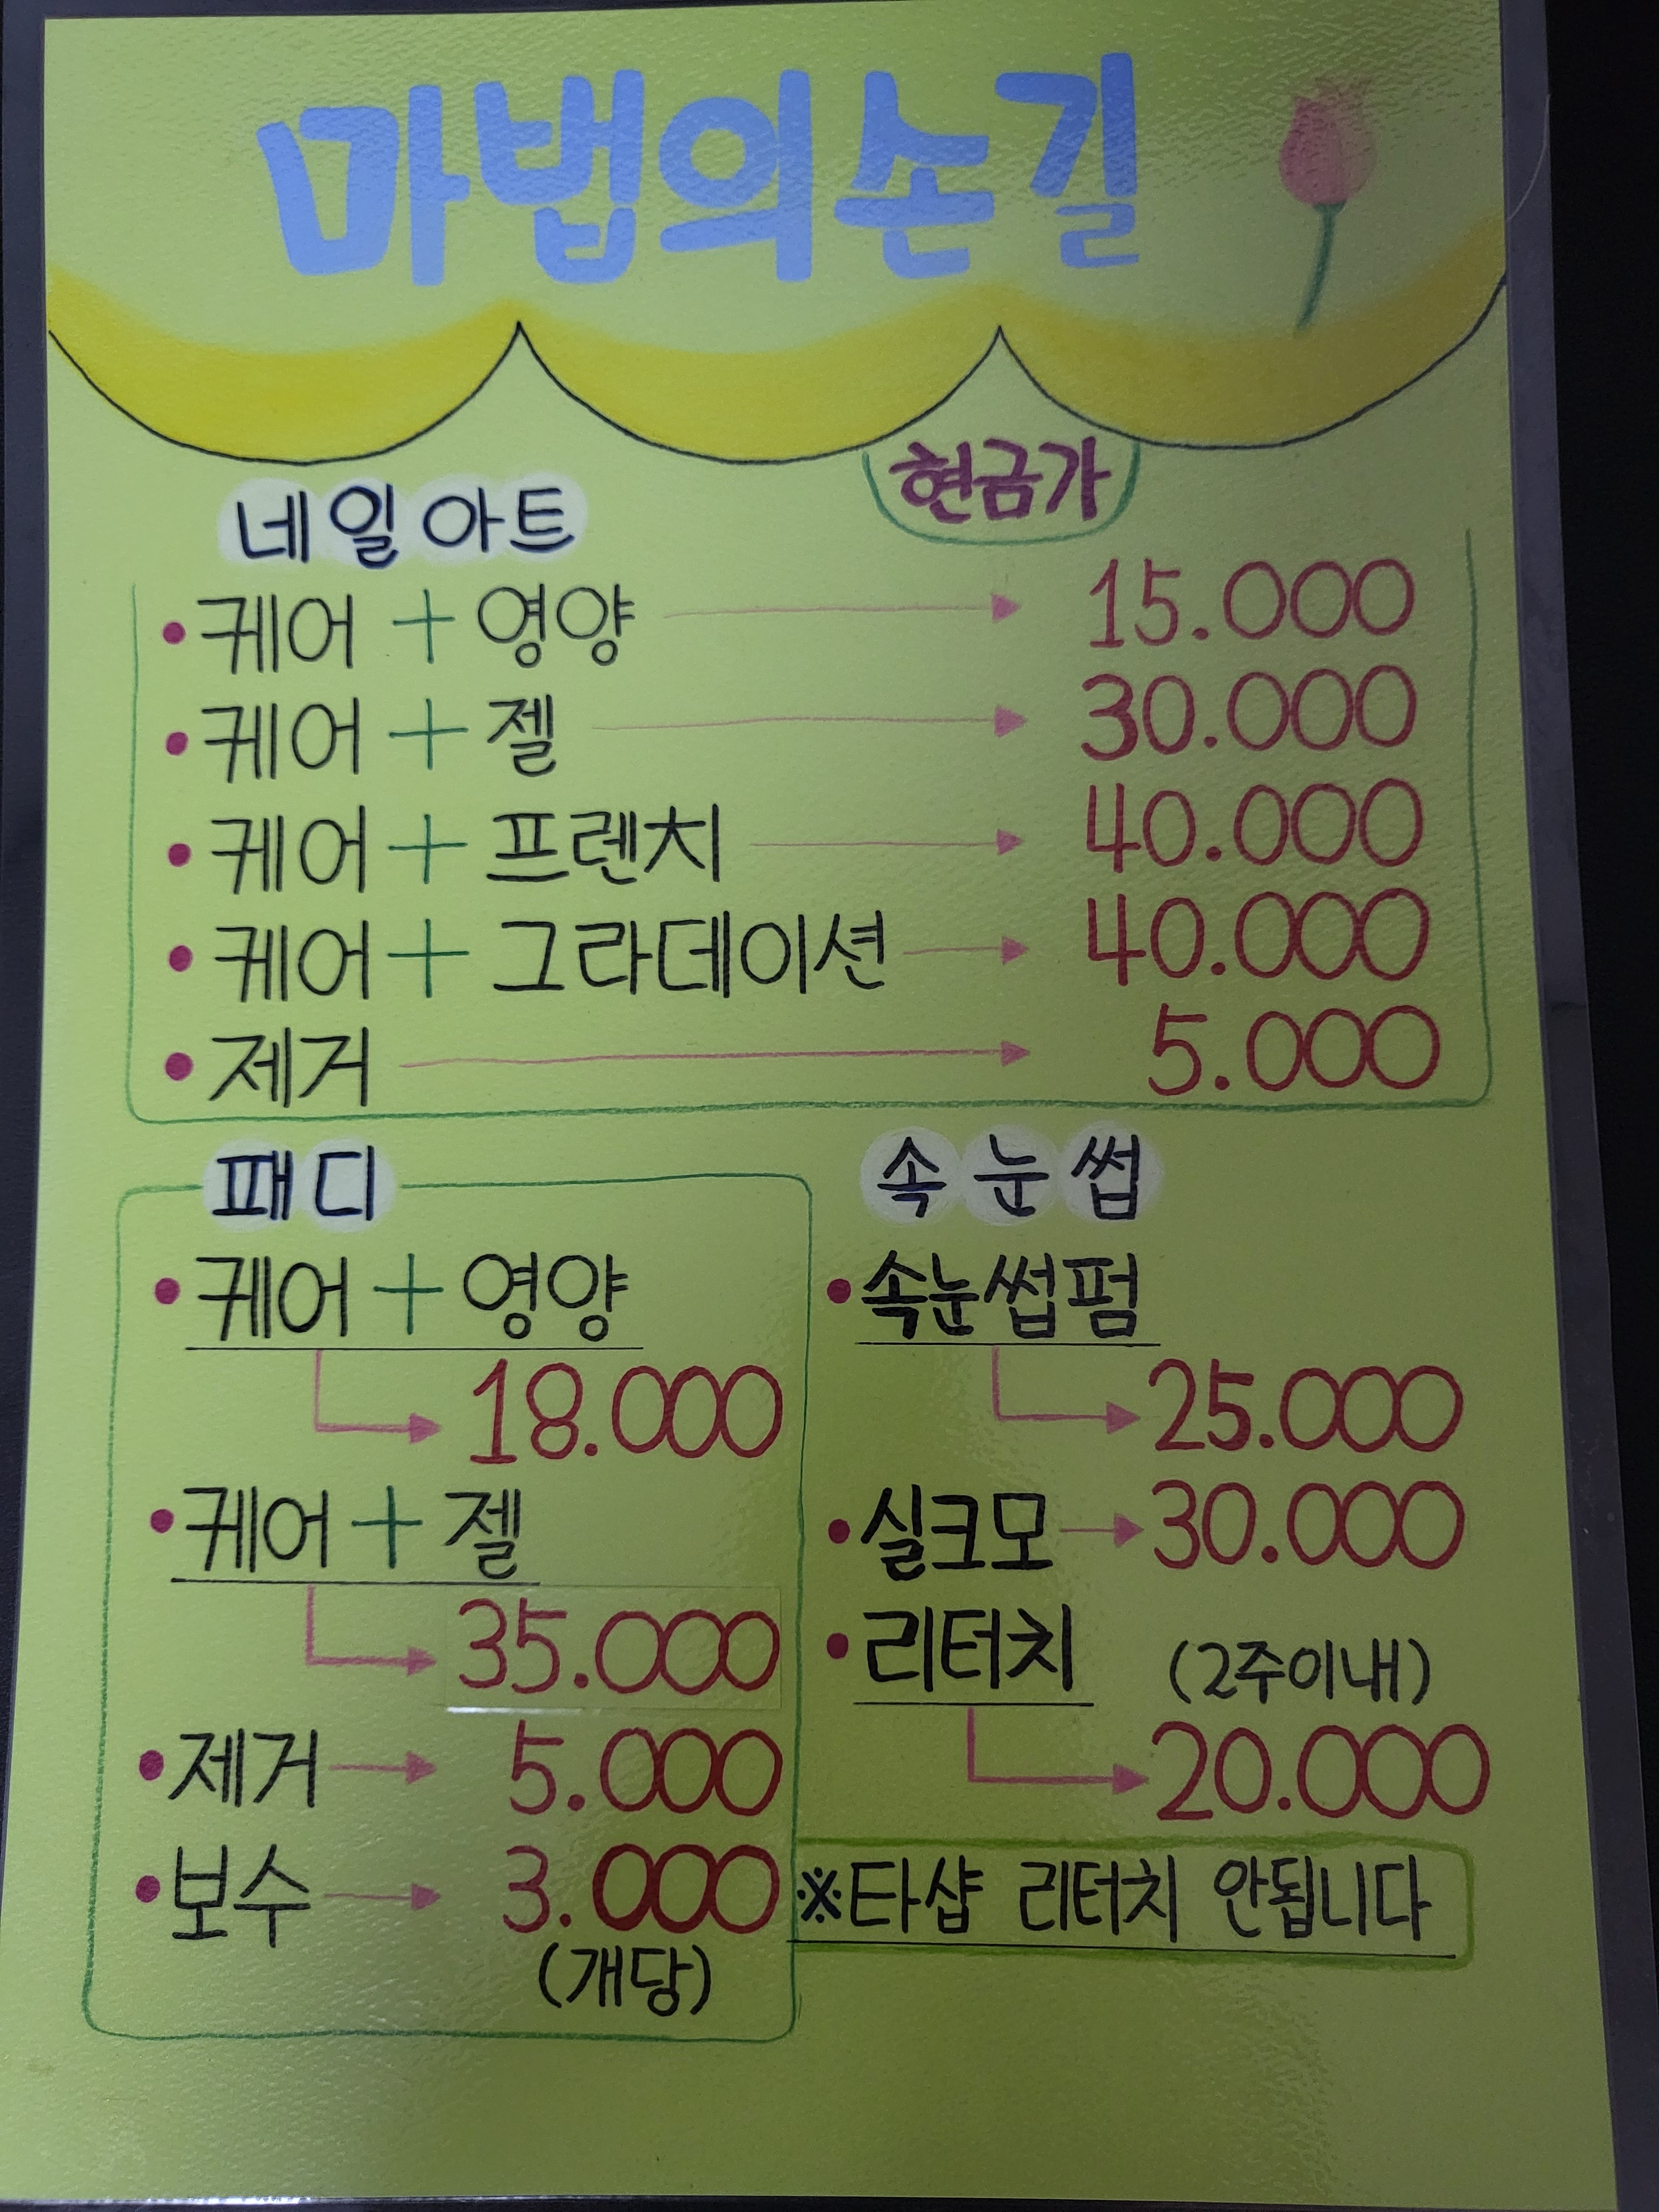 마법의손길
현금가
네일아트
• 케어 + 영양 → 15.000
• 케어 + 젤 → 30.000
• 케어 + 프렌치 → 40.000
• 케어 + 그라데이션 → 40.000
• 제거 → 5.000
패디
• 케어 + 영양
→ 18.000
• 케어 + 젤
→ 35.000
• 제거 → 5.000
• 보수 → 3.000
(개당)
속눈썹
• 속눈썹펌
→ 25.000
• 실크모 → 30.000
• 리터치 (2주이내)
→ 20.000
※타샵 리터치 안됩니다